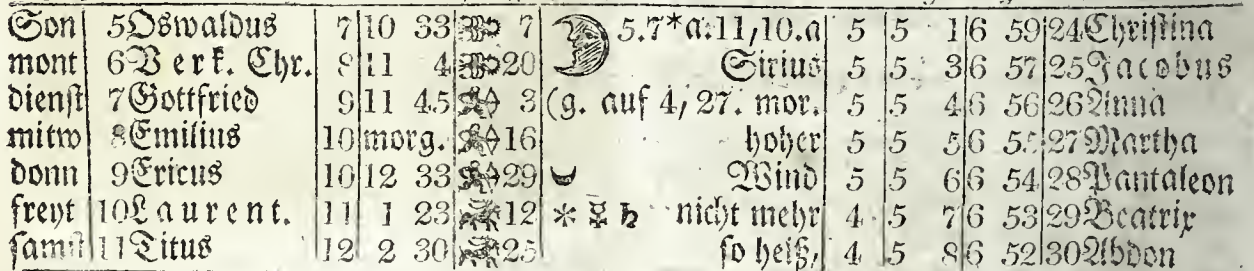 Son 5 Oswaldus 7 10 33 7 5.7*a.11,10.a 5 5 1 6 59 24 Christina
mont 6 Verk. Chr. 8 11 4 20 Sirius 5 5 3 6 57 25 Jacobus
dienst 7 Gottfried 9 11 45 3 (g. auf 4, 27. mor. 5 5 4 6 56 26 Anna
mitw 8 Emilius 10 morg. 16 hoher 5 5 5 6 55 27 Martha
donn 9 Ericus 10 12 33 29 Wind 5 5 6 6 54 28 Pantaleon
freyt 10 Laurent. 11 1 23 12 ⚹ ☿ ♄ nicht mehr 4 5 7 6 53 29 Beatrix
samst 11 Titus 12 2 30 25 so heiß, 4 5 8 6 52 30 Abdon